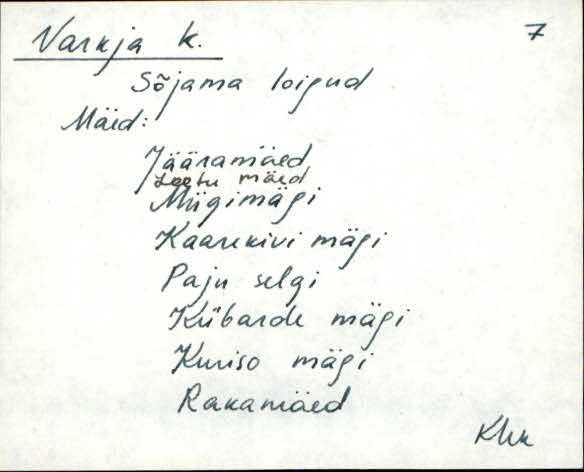 Varnja k. 7
Sõjama loigud
Mäed:
Jääramäed
Leetu mäed
Miigimägi
Kaarekivi mägi
Paju selgi
Kübarde mägi
Kuriso mägi
Rakamäed